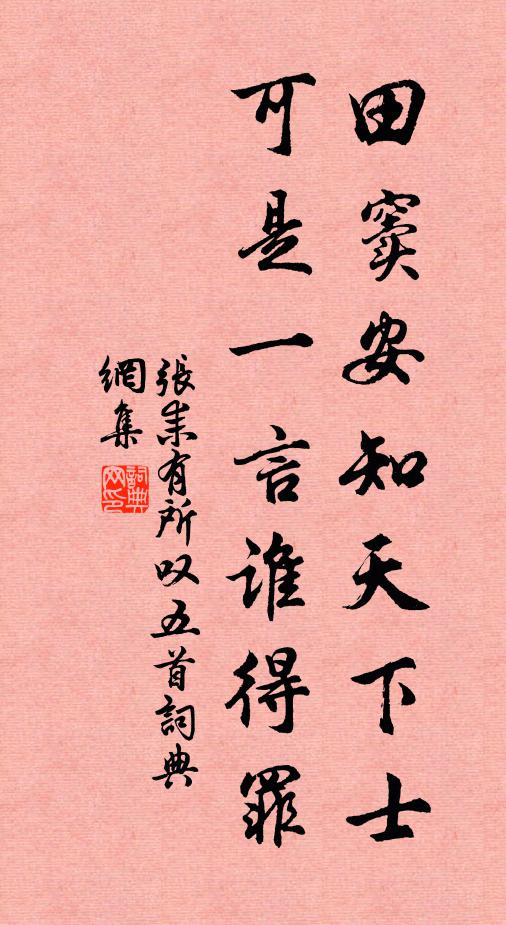 田窦安知天下士
可是一言谁得罪
張耒有所叹五首詞典
網集
詞典
网印